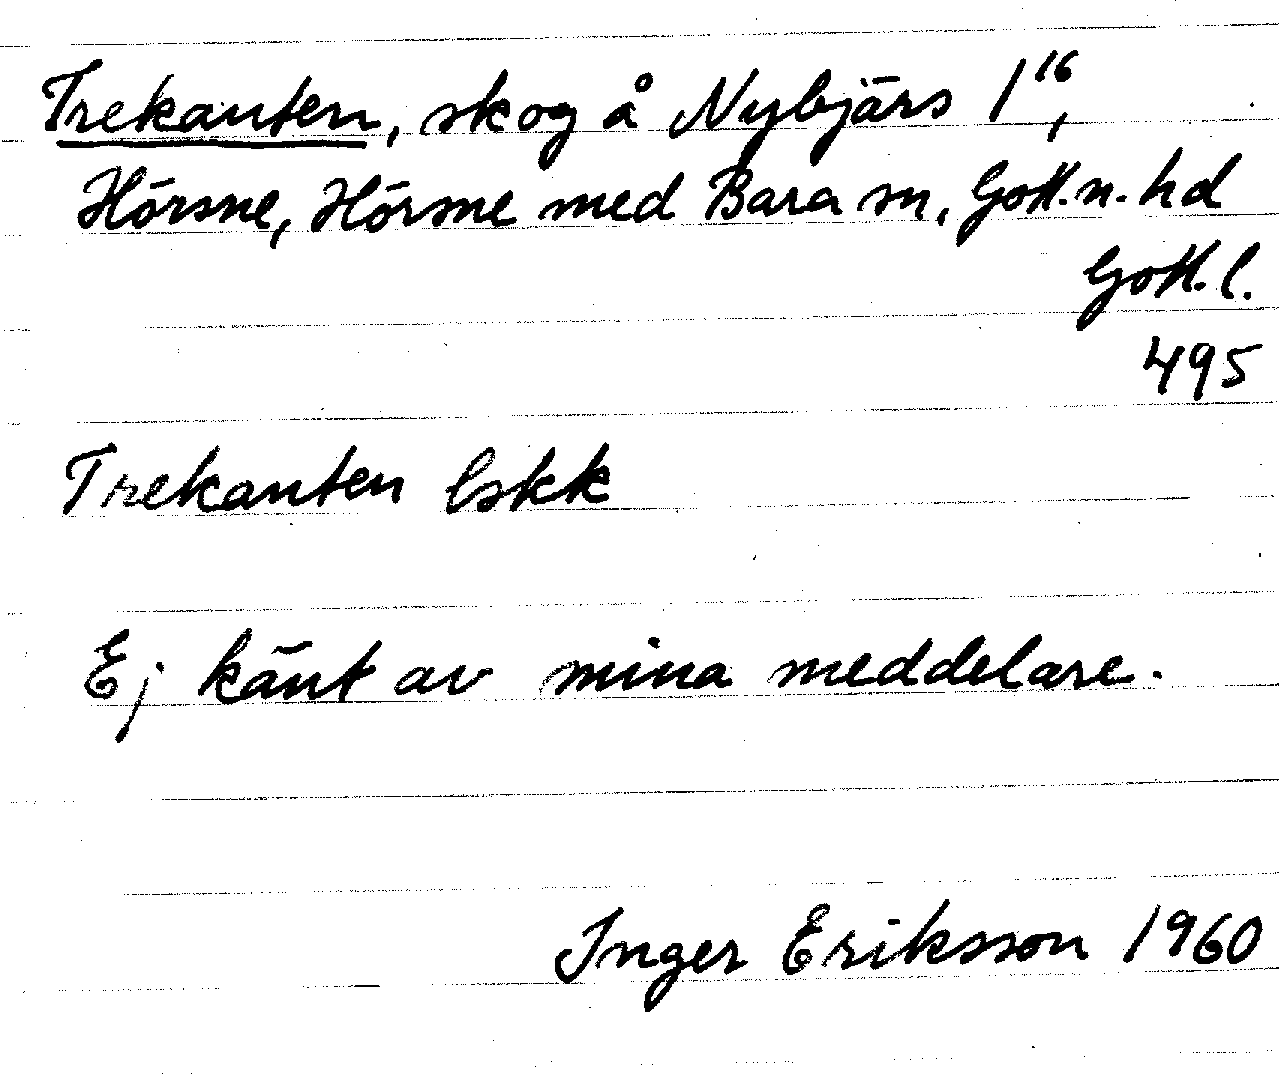 Trekanten, skog å Nybjärs 1¹⁶,
Hörsne, Hörsne med Bara sn, Gotl. n. hd
Gotl. l.
495
Trekanten Eskk
Ej känt av mina meddelare.
Inger Eriksson 1960